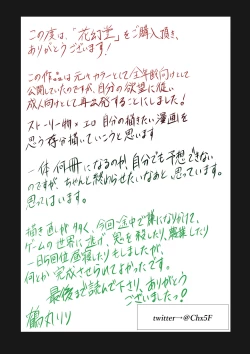 この度は、「花幻堂」をご購入頂き、
ありがとうございます！
この作品は元々カラーとして全年齢向けとして
公開していたのですが、自分の欲望に従い
成人向けとして再出発することにしました！
ストーリー物×エロ 自分の描きたい漫画を
思う存分描いていこうと思います
一体何冊になるのか、自分でも予想できない
のですが、ちゃんと終わらせたいなあと、思っています。
思ってはいます。
描き直しが多く、今回途中で嫌になりかけて、
ゲームの世界に逃げ、鬼を殺したり、農業したり
一日5回位昼寝したりもしましたが、
何とか完成させられてよかったです。
最後まで読んで下さり、ありがとう
ございましたっ！
鶴丸リリ
twitter→@Chx5F